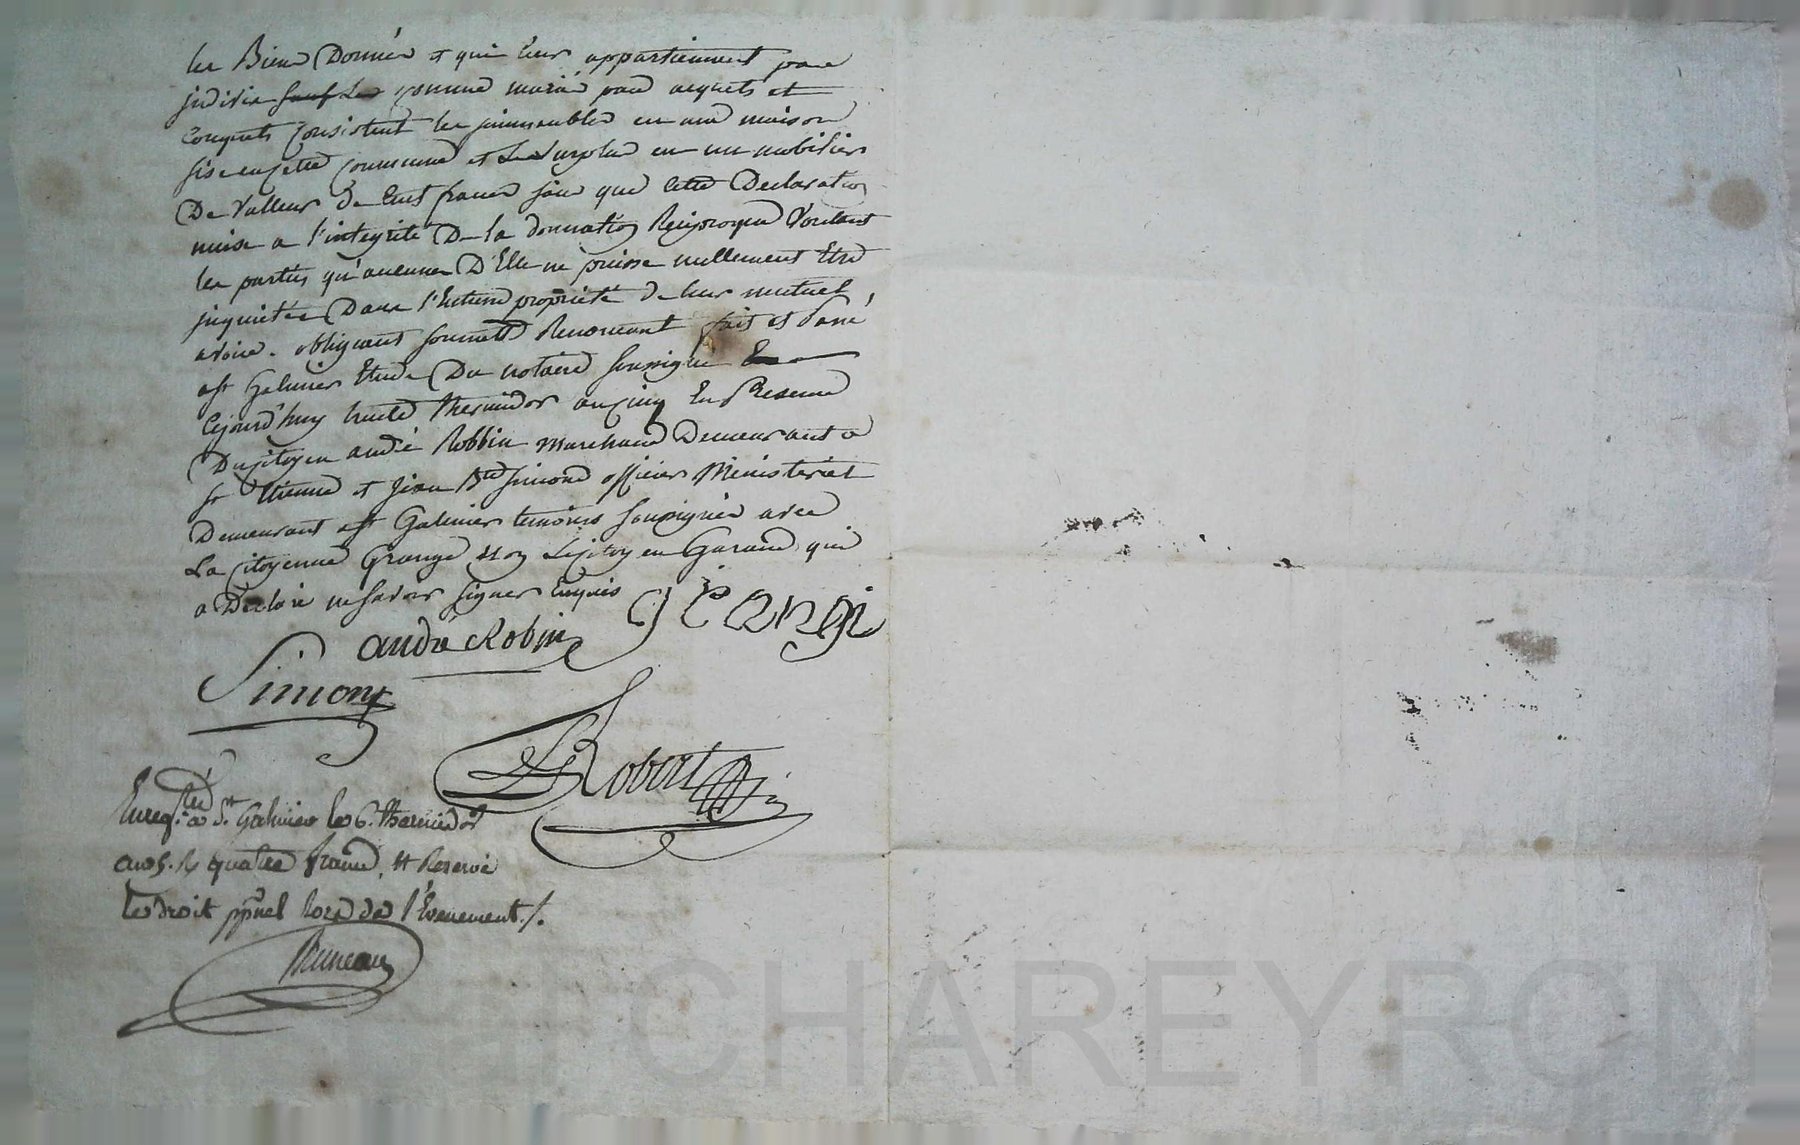 les Biens Donnés et qui leur appartiennent par
indivis sauf les comme mariés par acquets et
Conquets Consistent les immeubles en une maison
sise en cette commune et Le surplus en un mobilier
De Valleur de Cent francs sans que cette Declaration
nuise a l'integrité De la donnation Reciproque Voulant
les parties qu'aucunes D'Elle ne puisse nullement Etre
inquietée Dans l'Entiere propriété de leur mutuel
avoir. obligeant soumett Renoncant fait et Passé
a St Galmier Etude Du notaire soussigné
Cejourd'huy huite thermidor an cinq En Presence
Du citoyen andré Robbin marchand Demeurant a
St Etienne et Jean Bte Simond officier Ministeriel
Demeurant a St Galmier temoins soussignés avec
La citoyenne Grange non Le citoyen Garand qui
a Declaré ne savoir signer Enquis grangi
andré Robin
Simont
Robert
Enregtré a St Galmier le 6. thermidor
an 5. R quatre francs, et Reservé
le droit ppnel lors de l'Evenement ./.
Bruneau
CHAREYRON